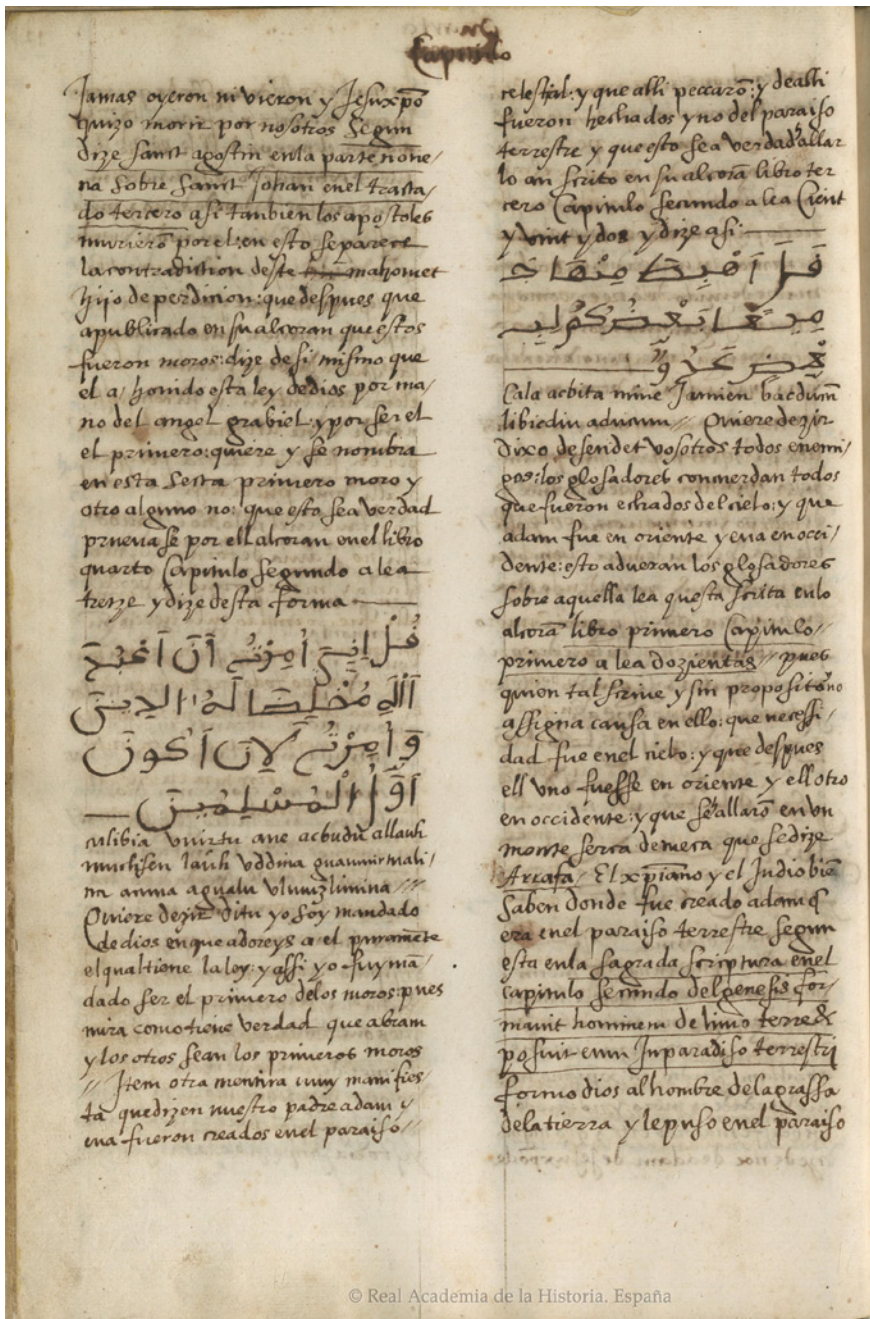 Capitulo
Jamas oyeron ni vieron y Jesuxpõ
quizo morir por nosotros segun
dize sanct agostin enla parte none/
na sobre sanct Johan enel tracta/
do tercero asi tambien los apostoles
murierõ por el: en esto separece
la contradiction deste mahomet
hijo de perdicion: que despues que
apublicado en su alcoran que estos
fueron moros: dize de si mismo que
el a honido esta ley dedios por ma/
no del angel grabiel: y por ser el
el primero: quiere y se nombra
en esta secta primero moro y
otro alguno no: que esto sea verdad
pruevase por ell alcoran enel libro
quarto Capitulo segundo a lea
tretze y dize desta forma
قُلْ إِنِّي أُمِرْتُ أَنَ اَعْبُدَ
اَللَّهَ مُخْلِصًا لَهُ الدِينَ
وَأُمِرْتُ لِأَنَ اَكُونَ
اَوَّلُ الْمُسْلِمِينَ
culibia vmirtu ane acbudu allauh
muchlisen lauh vddina guaumirtuali/
na acuna agualu vlmuzlimina ///
Quiere dezir ditu yo soy mandado
de dios en que adoreys a el puramẽte
el qual tiene la ley: y assi yo fuy mã/
dado ser el primero delos moros: pues
mira como tiene verdad que abram
y los otros sean los primeros moros
// Item otra mentira muy manifies/
ta que dizen nuestro padre adam y
eua fueron creados enel paraiso/
celestial: y que alli peccarõ: y dealli
fueron hechados y no del paraiso
terrestre y que esto sea verdad allar
lo an scrito en su alcorã libro ter
cero Capitulo secundo a lea Cient
y vint y dos y dize asi:
قَلَ اَهْبِطَ مِنْهَا جَ
مِيعًا بَعْضُكُمْ لِبَ
عْضٍ عَدُوٌّ
Cala acbita mine Jamien bacdum
libiedin aduum // Quiere dezir
Dixo desendet vosotros todos enemi/
gos: los glosadores concuerdan todos
que fueron echados del cielo: y que
adam fue en oriente y eua en occi/
dente: esto adueran los glosadores
sobre aquella lea questa scrita enlo
alcorã libro primero Capitulo//
primero a lea dozientas// pues
quien tal scriue y sin proposito no
assigna causa en ello: que necessi/
dad fue enel cielo: y que despues
ell vno fuesse en oriente y ell otro
en occidente: y que se allarõ en vn
monte serca demeca que se dize
Arcafa/ El xp̃iano y el Judio biẽ
saben donde fue creado adam q̃
era enel paraiso terrestre segun
esta enla sagrada scriptura enel
capitulo secundo del genesis for/
mauit hominem de limo terre &
posuit eum In paradiso terrestri
formo dios al hombre dela grassa
dela tierra y le puso enel paraiso
© Real Academia de la Historia. España